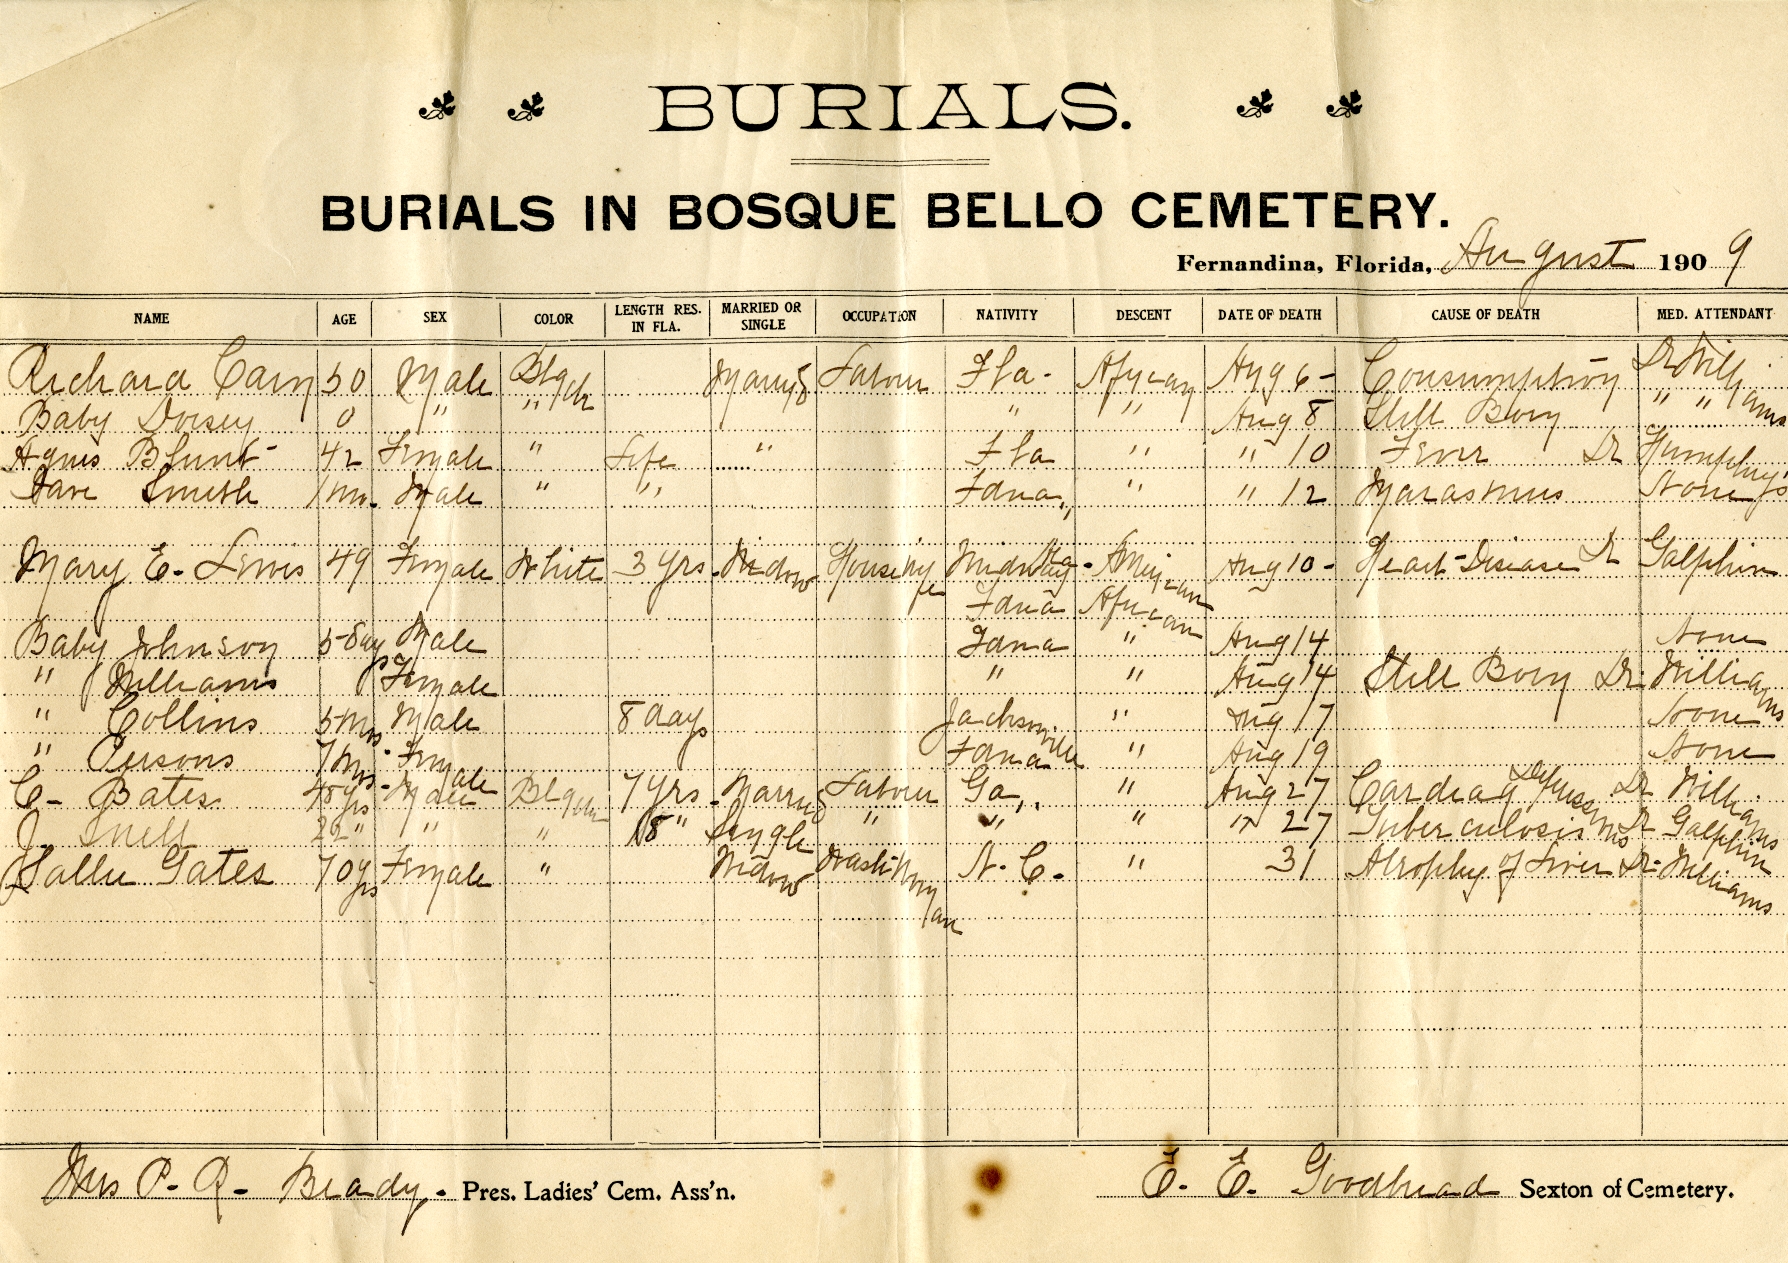 BURIALS.
BURIALS IN BOSQUE BELLO CEMETERY.
Fernandina, Florida, August 1909
NAME AGE SEX COLOR LENGTH RES. IN FLA. MARRIED OR SINGLE OCCUPATION NATIVITY DESCENT DATE OF DEATH CAUSE OF DEATH MED. ATTENDANT
Richard 50 Male Black Married Labour Fla- African Aug 6- Consumption Dr Williams
Baby Dorsey 0 " " " " Aug 8 Still Born " "
Agnes Blunt 42 Female " Life " Fla " " 10 Fever Dr Humphrey's
Dave Smith 1 mo. Male " " Fdna " " 12 Marasmus None
Mary E. Lewis 49 Female White 3 Yrs. Widow Housewife American Aug 10- Heart Disease Dr Galphin
Fdna African
Baby Johnson 5 days Male Fdna " Aug 14 None
" Williams Female " " Aug 14 Still Born Dr. Williams
" Collins 5 mos Male 8 days Jacksonville " Aug 17 None
" Persons 7 mos. Female Fdna " Aug 19 None
C. Bates yrs Male Black 7 Yrs. Married Labour Ga,, " Aug 27 Cardiac Dr Williams
J. Snell 22 " " " 18 " Single " " " " 27 Tuberculosis Dr Galphin
Sallie Gates 70 yrs Female " Widow Wash Woman N. C. " 31 Atrophy of Liver Dr. Williams
Mrs P. R. Beady. Pres. Ladies' Cem. Ass'n.
E. E. Goodbread Sexton of Cemetery.